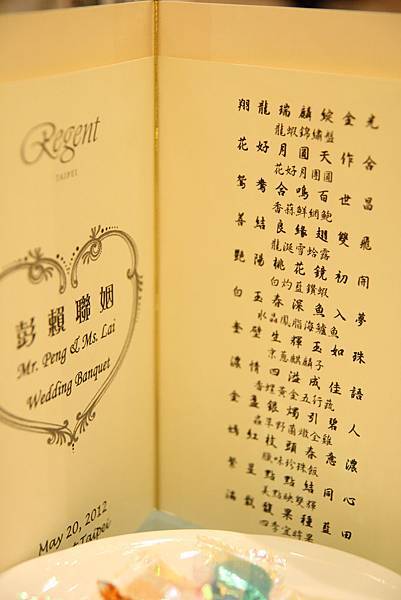 Regent
TAIPEI
彭賴聯姻
Mr. Peng & Ms. Lai
Wedding Banquet
May 20, 2012
Taipei
翔龍瑞麟綻金光
龍蝦錦繡盤
花好月圓天作合
花好月團圓
鴛鴦合鳴百世昌
香蒜鮮鮑
善結良緣翅雙飛
龍涎雪蛤露
艷陽桃花鏡初開
白灼藍鑽蝦
白玉春深魚入夢
水晶鳳脂海鱸魚
奎璧生輝玉如珠
京蔥麒麟子
濃情四溢成佳語
香煤黃金五行蔬
金盞銀燭引碧人
野菌燉全雞
嫣紅枝頭春意濃
臘味珍珠飯
繁星點點結同心
美點映雙輝
滿載馥果種藍田
四季宜時果